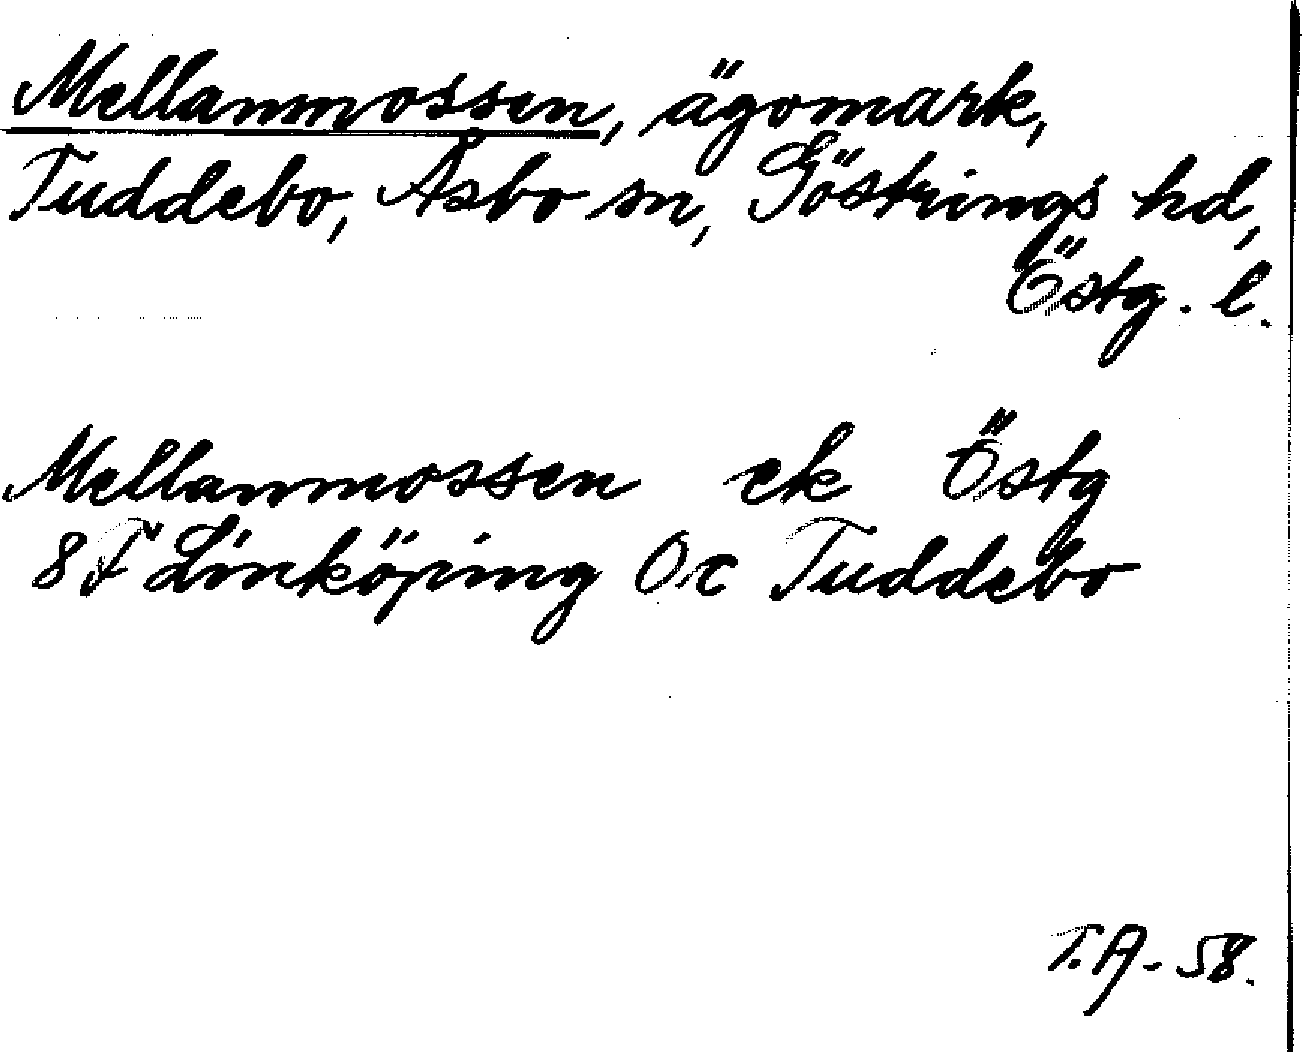 Mellanmossen, ägomark,
Tuddebo, Åsbo sn, Göstrings hd,
Östg. l.
Mellanmossen ek Östg
8 F Linköping Oc Tuddebo
T.A-58.